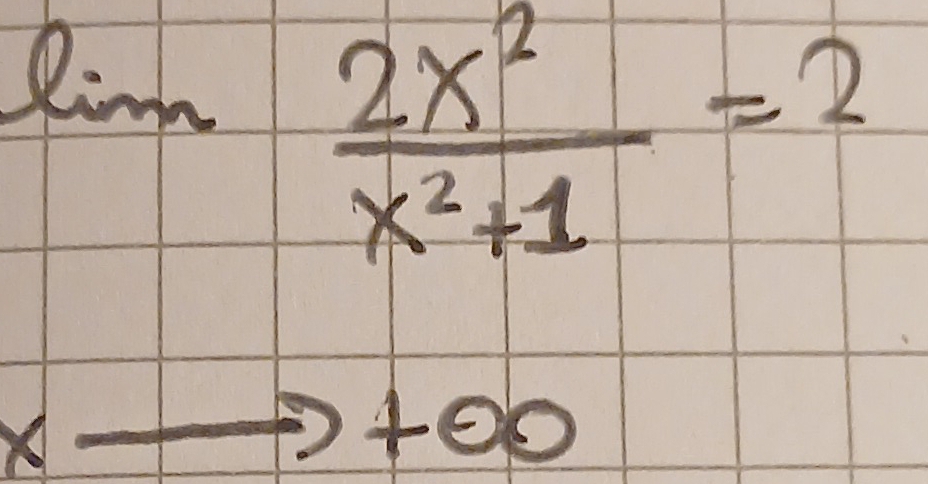 lim 2x² = 2
x²+1
x → +∞